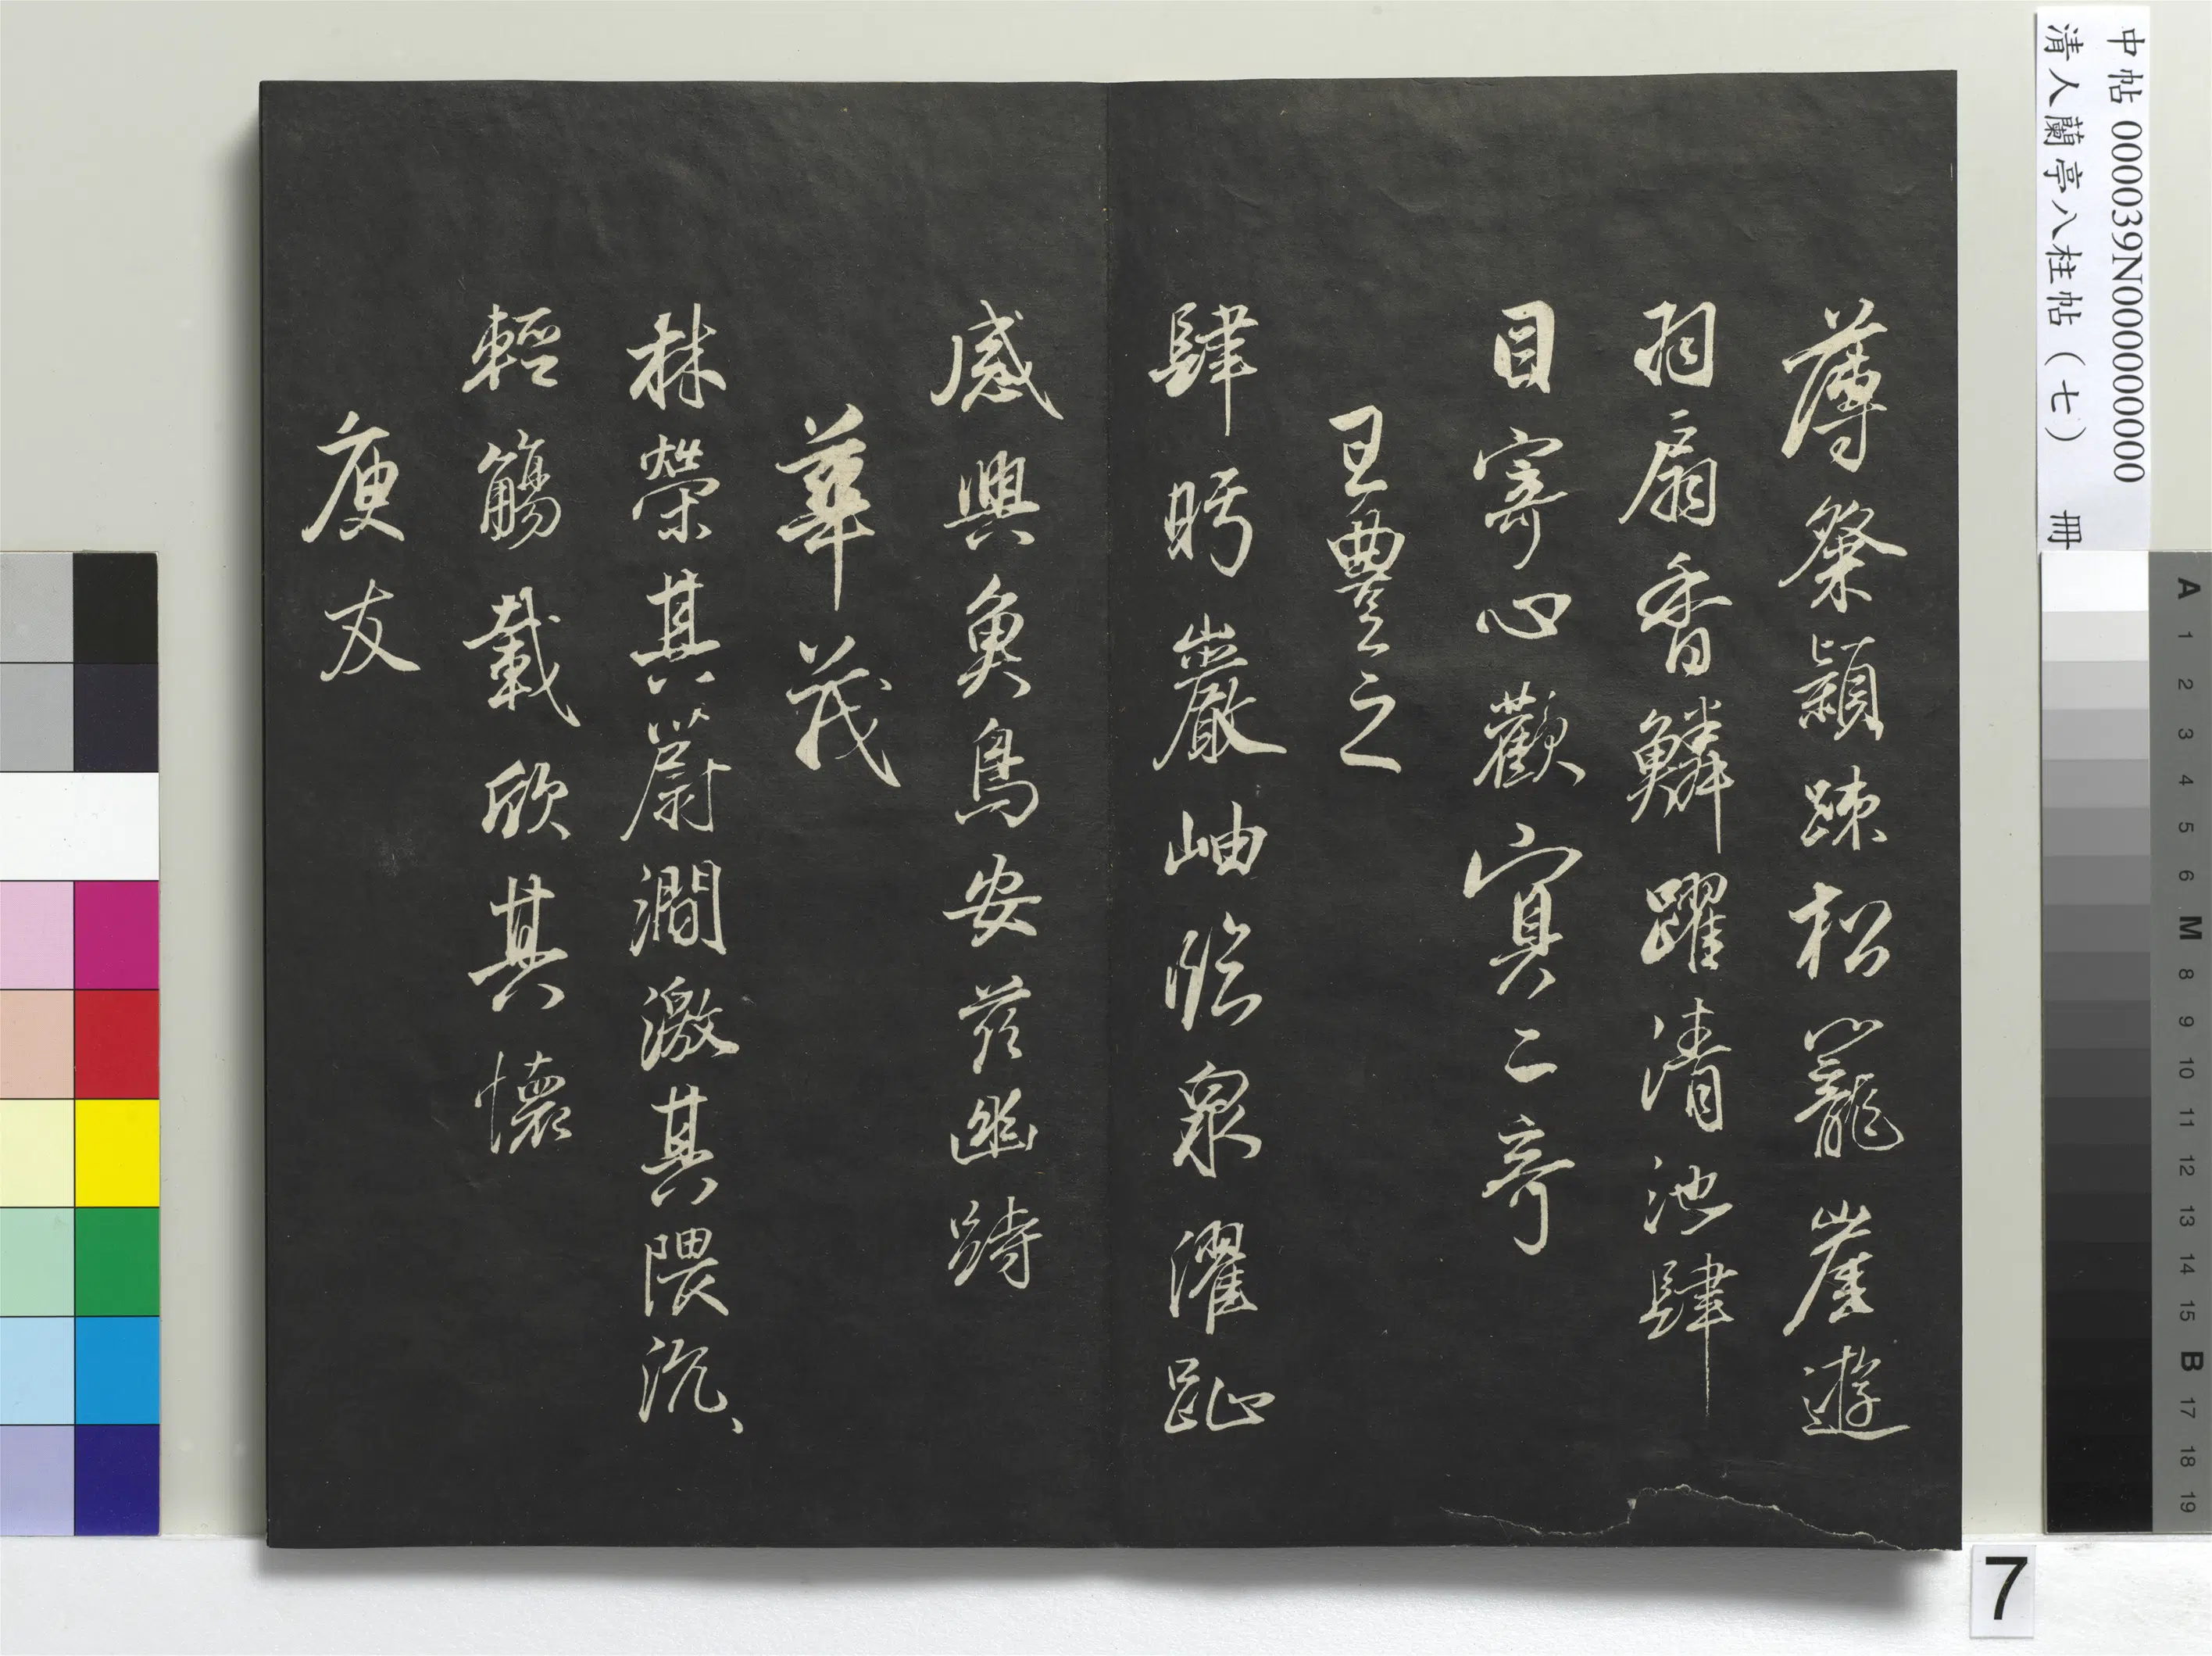 中帖 000039N000000000
清人蘭亭八柱帖（七） 冊
薄粲穎踈松籠崖遊
羽扇香鱗躍清池肆
目寄心歡冥二奇
王豐之
肆眄巖岫臨泉濯趾
感興魚鳥安茲幽跱
華茂
林榮其蔚澗激其隈汎、
輕觴載欣其懷
庾友
A 1 2 3 4 5 6 M 8 9 10 11 12 13 14 15 B 17 18 19
7